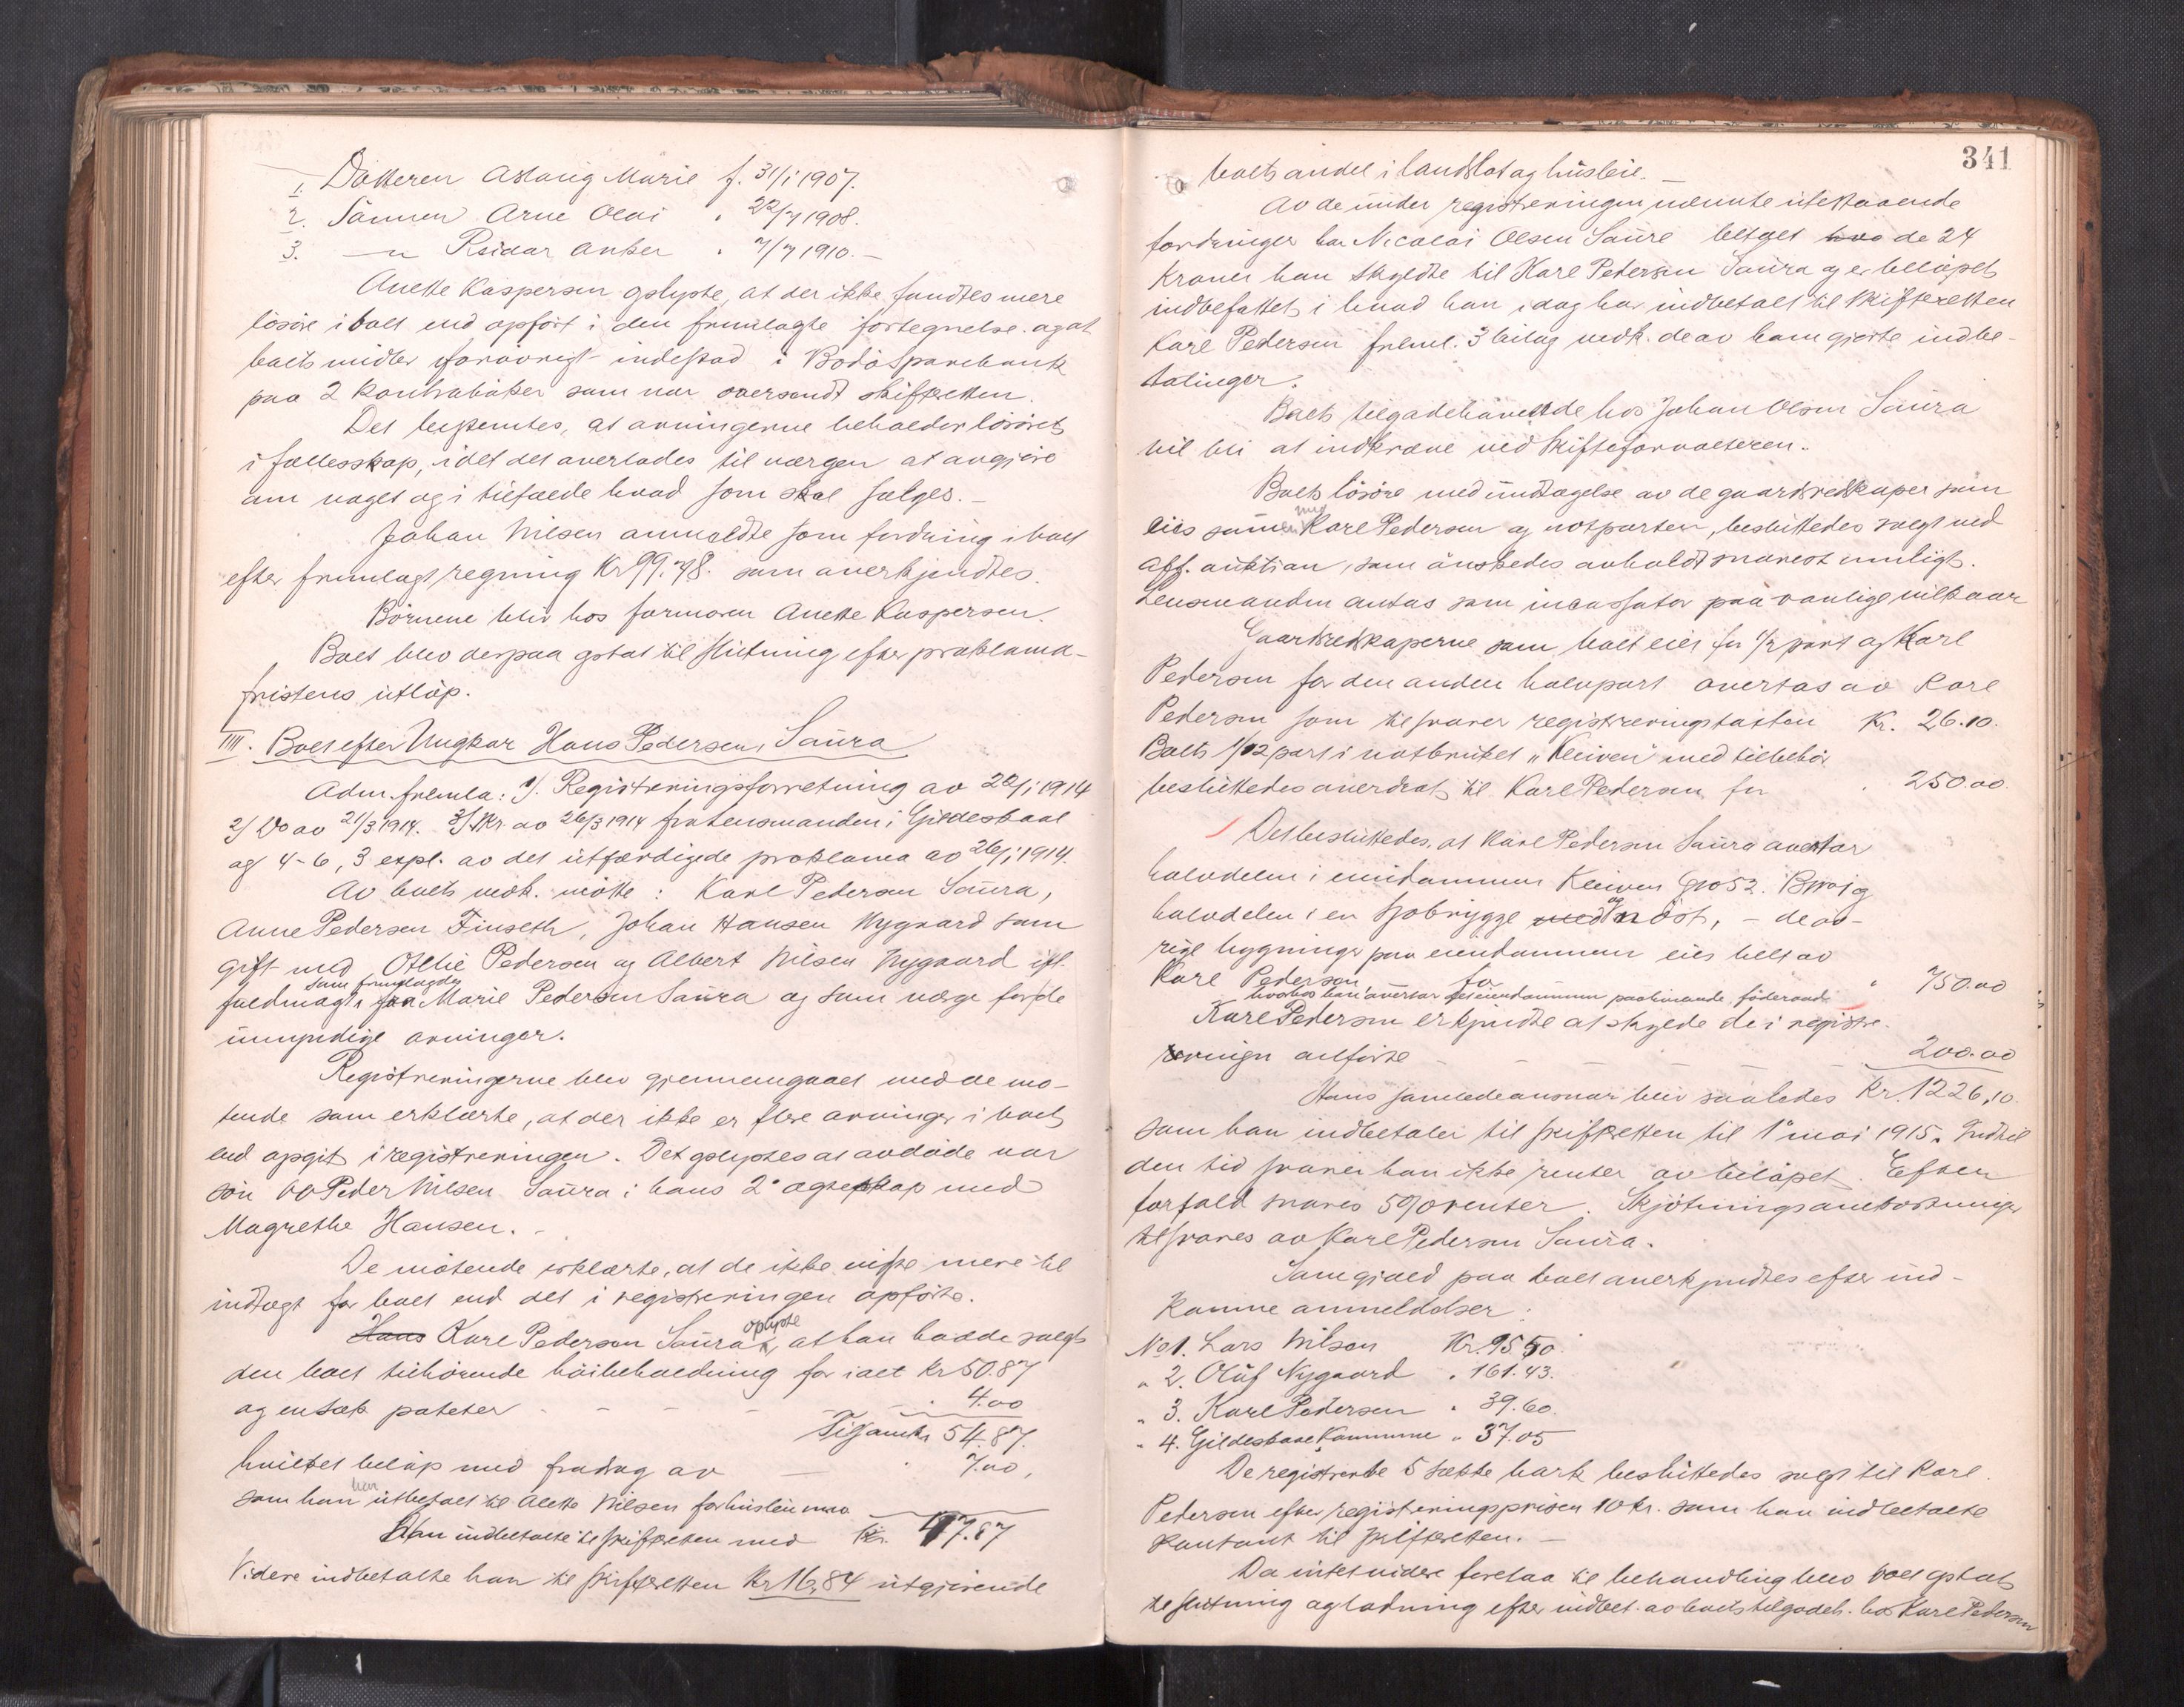 1. Datteren Aslaug Marie f. 31/1 1907.
2. Sønnen Arne Olai " 22/7 1908.
3. — " Reidar Anker " 7/7 1910. —
Anette Kaspersen oplyste, at der ikke fandtes mere
løsøre i boet end opført i den fremlagte fortegnelse og at
boets midler forøvrigt indestod i Bodø Sparebank
paa 2 kontrabøker som var oversendt skifteretten.
Det bestemtes, at arvingerne beholder løsøret
i fællesskap, idet det overlades til værgen at avgjøre
om noget og i tilfælde hvad som skal sælges. —
Johan Nilsen anmeldte som fordring i boet
efter fremlagt regning Kr 99.48. som anerkjendtes.
Børnene blir hos farmoren Anette Kaspersen.
Boet blev derpaa opstat til slutning efter proklama-
fristens utløp.
IIII. Boet efter Ungkar Hans Pedersen, Saura
Adm. fremla: 1/. Registreringsforretning av 22/1 1914
2/ Do av 21/3 1914. 3/ Skr. av 26/3 1914 fra lensmanden i Gildeskaal
og 4-6, 3 expl. av det utfærdigede proklama av 26/1 1914.
Av boets vedk. møtte: Karl Pedersen Saura,
Anne Pedersen Finseth, Johan Hansen Nygaard som
gift med Otelie Pedersen og Albert Nilsen Nygaard ifl.
som fremlagdes
fuldmagt fra Marie Pedersen Saura og som værge for de
umyndige arvinger.
Registreringerne blev gjennemgaaet med de mø-
tende som erklærte, at der ikke er flere arvinger i boet
end opgit i registreringen. Det oplystes at avdøde var
søn av Peder Nilsen Saura i hans 2° ægteskap med
Magrethe Hansen. -
De møtende erklærte, at de ikke visste mere til
indtægt for boet end det i registreringen opførte.
oplyste
Hans Karl Pedersen Saura, at han hadde solgt
den boet tilhørende høibeholdning for ialt kr 50.87
og en sæk poteter - - - - - " 4.00
Tilsam kr 54.87.
hvilket beløp med fradrag av — " 7.00,
har
som han utbetalt til Alette Nilsen for husleie m.v.
Han indbetalte til skifteretten med Kr. 47.87
Videre indbetalte han til skifteretten Kr 16,84 utgjørende
341
boets andel i landslot og husleie. —
Av de under registreringen nævnte utestaaende
fordringer har Nicolai Olsen Saure betalt hvo de 24
kroner han skyldte til Karl Pedersen Saura og er beløpet
indbefattet i hvad han idag har indbetalt til skifteretten
Karl Pedersen freml. 3 bilag vedk. de av ham gjorte indbe-
talinger.
Boets tilgodehavende hos Johan Olsen Saura
vil bli at indkræve ved skifteforvalteren.
Boets løsøre med undtagelse av de gaardsredskaper som
med
eies sammen Karl Pedersen og notparten, besluttedes solgt ved
off. auktion, som ønskedes avholdt snarest muligt.
Lensmanden antas som incassator paa vanlige vilkaar
Gaardsredskaperne som boet eier for 1/2 part og Karl
Pedersen for den anden halvpart overtas av Karl
Pedersen som tilsvarer registreringstaksten Kr. 26.10.
Boets 1/12 part i notbruket "Kleiven" med tilbehør
besluttedes overdrat til Karl Pedersen for " 250.00.
Det besluttedes, at Karl Pedersen Saura overtar
halvdelen i eiendommen Kleiven Gno 52. Bno j og
og
halvdelen i en sjøbrygge med nøst, — de øv-
rige bygninger paa eiendommen eies helt av
Karl Pedersen for " 750.00
hvorhos han overtar det eiendommen paahvilende føderaad
Karl Pedersen erkjendte at skylde de i registre-
reringen anførte - - - - 200.00
Hans samlede ansvar blir saaledes Kr. 1226,10.
som han indbetaler til skifteretten til 1' mai 1915. Indtil
den tid svarer han ikke renter av beløpet. Efter
forfald svares 5% renter. Skjøtningsomkostninger
tilsvares av Karl Pedersen Saura.
Som gjæld paa boet anerkjendtes efter ind-
komne anmeldelser:
No 1. Lars Nilsen Kr. 95.50.
" 2. Oluf Nygaard " 161.43.
" 3. Karl Pedersen " 39.60.
" 4. Gildeskaal Kommune " 37.05
De registrerte 5 sække bark besluttedes solgt til Karl
Pedersen efter registreringsprisen 10 kr. som han indbetalte
kontant til skifteretten. —
Da intet videre foretaa til behandling blev boet opstat
til slutning og lodning efter indbet. av boets tilgodeh. hos Karl Pedersen